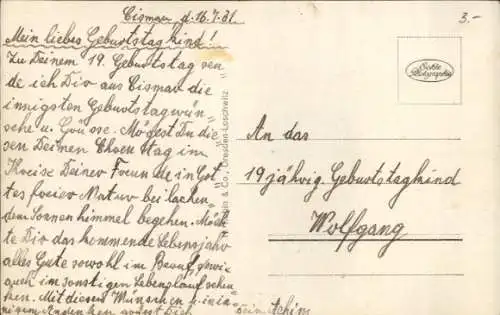 Cismar, d. 16.7.31.
3,-
Mein liebes Geburtstagkind!
Zu Deinem 19. Geburtstag sen
de ich Dir aus Cismar die
innigsten Geburtstagwün-
sche u. Grüsse. Mögest Du die
sen Deinen Ehren tag im
Kreise Deiner Freunde in Got
tes freier Natur bei lachen
dem Sonnenhimmel begehen. Möch
te Dir das kommende Lebensjahr
alles Gute sowohl im Beruf, sowie
auch im sonstigen Lebenslauf schen
ken. Mit diesen Wünschen u. in in
nigem Andenken grüsst Dich
Dein Achim
& Co., Dresden-Loschwitz
Echte
Photographie
An das
19 jährig. Geburtstagkind
Wolfgang